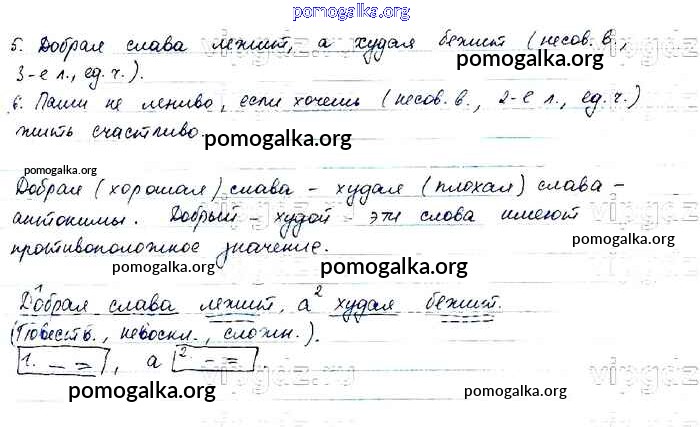 pomogalka.org
5. Добрая слава лежит, а худая бежит (несов. в.,
3-е л., ед. ч.).
pomogalka.org
6. Паши не лениво, если хочешь (несов. в., 2-е л., ед. ч.)
жить счастливо.
pomogalka.org
pomogalka.org
Добрая (хорошая) слава – худая (плохая) слава –
антонимы. Добрый – худой – эти слова имеют
pomogalka.org
противоположное значение.
pomogalka.org
pomogalka.org
1 Добрая слава лежит, а 2 худая бежит.
(Повеств., невоскл., сложн.).
pomogalka.org
1. – = , а 2. – =
vipgdz.ru
pomogalka.org
pomogalka.org